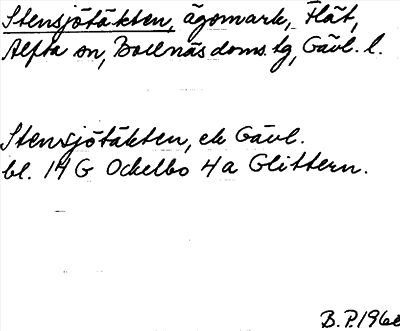 Stensjötäkten, ägomark, Flät,
Alfta sn, Bollnäs doms. tg, Gävl. l.
Stensjötäkten, ek Gävl.
bl. 14 G Ockelbo 4 a Glittern.
B.P. 196